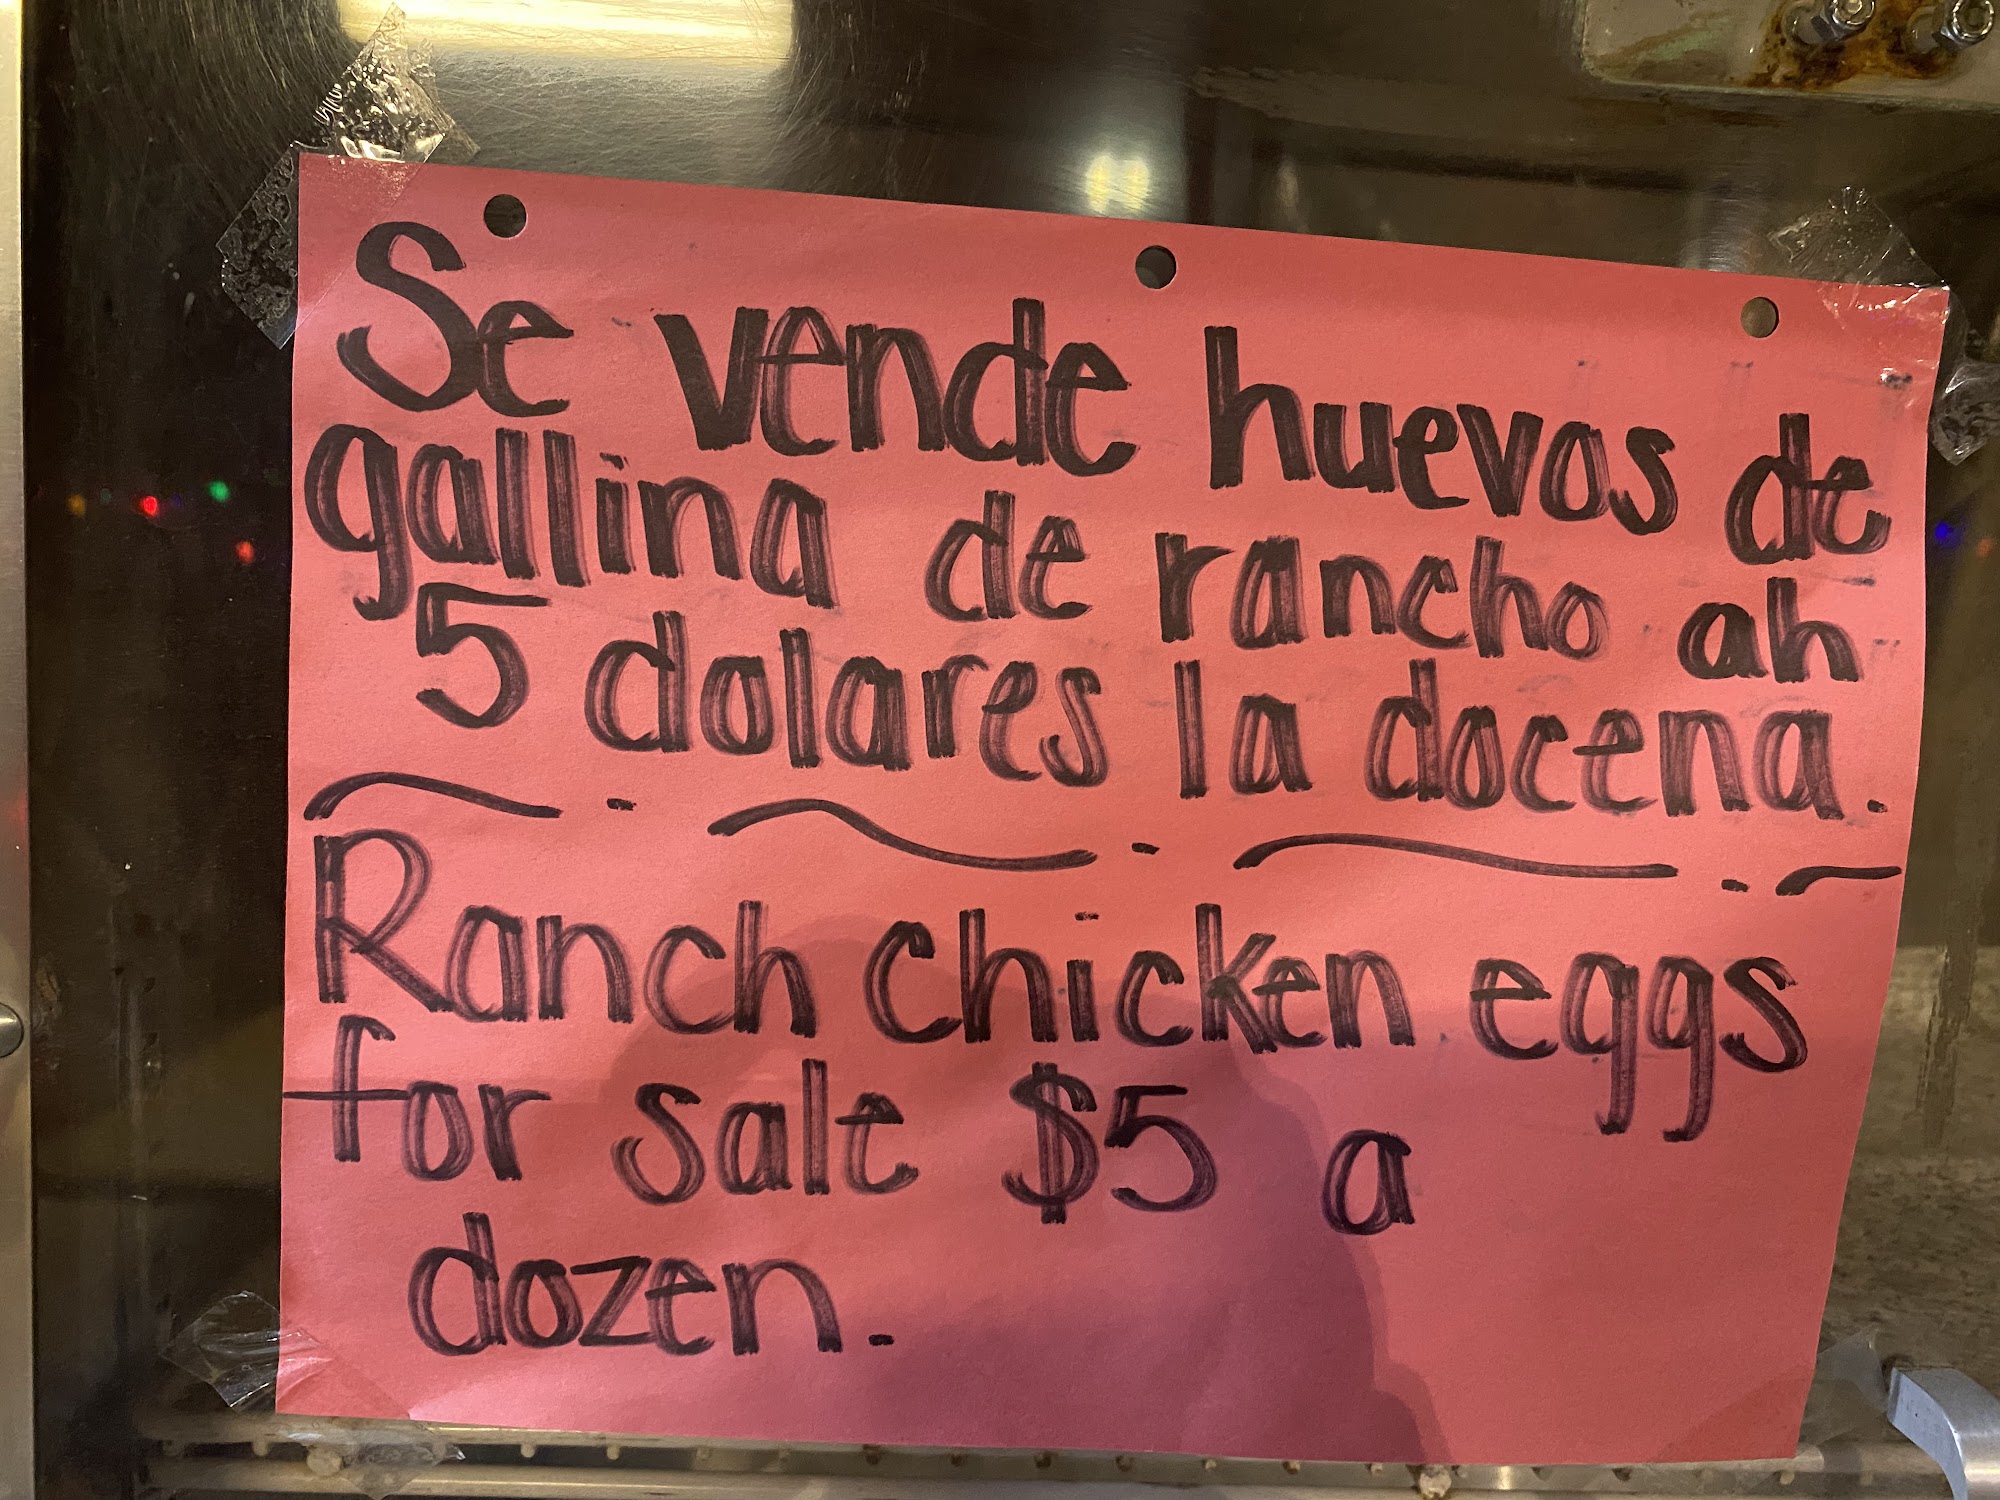 Se vende huevos de
gallina de rancho ah
5 dolares la docena.
Ranch chicken eggs
for sale $5 a
dozen.